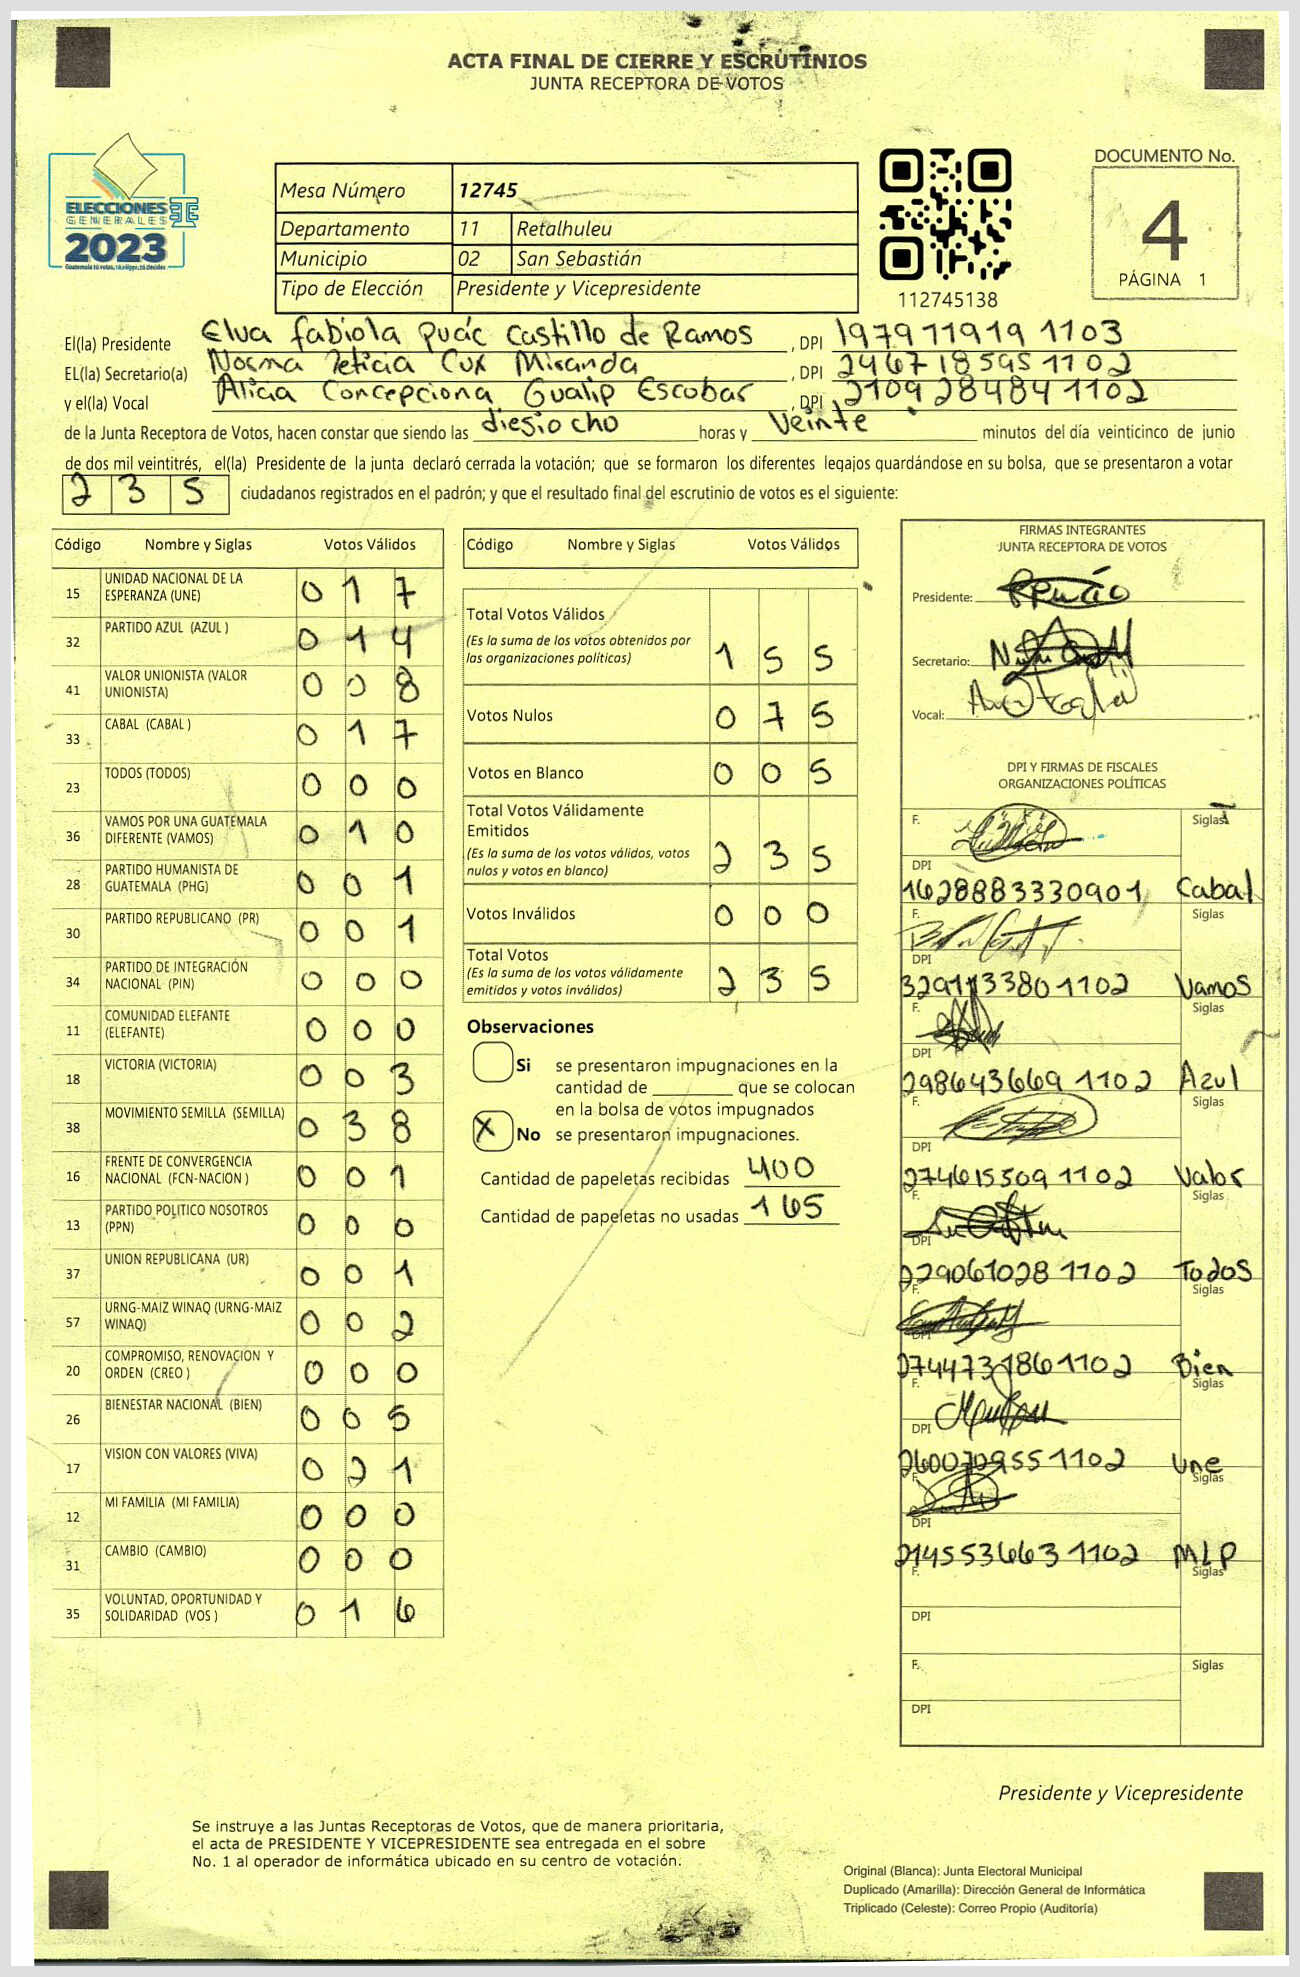 ACTA FINAL DE CIERRE Y ESCRUTINIOS
JUNTA RECEPTORA DE VOTOS
ELECCIONES
GENERALES
2023
Guatemala tú votas, tú eliges, tú decides
Mesa Número 12745
Departamento 11 Retalhuleu
Municipio 02 San Sebastián
Tipo de Elección Presidente y Vicepresidente
112745138
DOCUMENTO No.
4
PÁGINA 1
El(la) Presidente Elva fabiola Puác Castillo de Ramos, DPI 1979119191103
EL(la) Secretario(a) Norma Leticia Cux Miranda, DPI 2467185951102
y el(la) Vocal Alicia Concepciona Gualip Escobar, DPI 2109284841102
de la Junta Receptora de Votos, hacen constar que siendo las diesiocho horas y Veinte minutos del día veinticinco de junio
de dos mil veintitrés, el(la) Presidente de la junta declaró cerrada la votación; que se formaron los diferentes legajos guardándose en su bolsa, que se presentaron a votar
2 3 5 ciudadanos registrados en el padrón; y que el resultado final del escrutinio de votos es el siguiente:
Código Nombre y Siglas Votos Válidos
15 UNIDAD NACIONAL DE LA ESPERANZA (UNE) 0 1 7
32 PARTIDO AZUL (AZUL ) 0 1 4
41 VALOR UNIONISTA (VALOR UNIONISTA) 0 0 8
33 CABAL (CABAL ) 0 1 7
23 TODOS (TODOS) 0 0 0
36 VAMOS POR UNA GUATEMALA DIFERENTE (VAMOS) 0 1 0
28 PARTIDO HUMANISTA DE GUATEMALA (PHG) 0 0 1
30 PARTIDO REPUBLICANO (PR) 0 0 1
34 PARTIDO DE INTEGRACIÓN NACIONAL (PIN) 0 0 0
11 COMUNIDAD ELEFANTE (ELEFANTE) 0 0 0
18 VICTORIA (VICTORIA) 0 0 3
38 MOVIMIENTO SEMILLA (SEMILLA) 0 3 8
16 FRENTE DE CONVERGENCIA NACIONAL (FCN-NACION ) 0 0 1
13 PARTIDO POLITICO NOSOTROS (PPN) 0 0 0
37 UNION REPUBLICANA (UR) 0 0 1
57 URNG-MAIZ WINAQ (URNG-MAIZ WINAQ) 0 0 2
20 COMPROMISO, RENOVACION Y ORDEN (CREO ) 0 0 0
26 BIENESTAR NACIONAL (BIEN) 0 0 5
17 VISION CON VALORES (VIVA) 0 2 1
12 MI FAMILIA (MI FAMILIA) 0 0 0
31 CAMBIO (CAMBIO) 0 0 0
35 VOLUNTAD, OPORTUNIDAD Y SOLIDARIDAD (VOS ) 0 1 6
Código Nombre y Siglas Votos Válidos
Total Votos Válidos
(Es la suma de los votos obtenidos por
las organizaciones políticas) 1 5 5
Votos Nulos 0 7 5
Votos en Blanco 0 0 5
Total Votos Válidamente
Emitidos
(Es la suma de los votos válidos, votos
nulos y votos en blanco) 2 3 5
Votos Inválidos 0 0 0
Total Votos
(Es la suma de los votos válidamente
emitidos y votos inválidos) 2 3 5
Observaciones
Si se presentaron impugnaciones en la
cantidad de ________ que se colocan
en la bolsa de votos impugnados
X No se presentaron impugnaciones.
Cantidad de papeletas recibidas 400
Cantidad de papeletas no usadas 165
FIRMAS INTEGRANTES
JUNTA RECEPTORA DE VOTOS
Presidente:
Secretario:
Vocal:
DPI Y FIRMAS DE FISCALES
ORGANIZACIONES POLÍTICAS
F. Siglas
DPI
1628883330901 Cabal
F. Siglas
DPI
3291133801102 Vamos
F. Siglas
DPI
2986436691102 Azul
F. Siglas
DPI
2746155091102 Valor
F. Siglas
DPI
2290610281102 Todos
F. Siglas
DPI
2744731861102 Bien
F. Siglas
DPI
2600709551102 Une
F. Siglas
DPI
2145536631102 MLP
F. Siglas
DPI
F. Siglas
DPI
Presidente y Vicepresidente
Se instruye a las Juntas Receptoras de Votos, que de manera prioritaria,
el acta de PRESIDENTE Y VICEPRESIDENTE sea entregada en el sobre
No. 1 al operador de informática ubicado en su centro de votación.
Original (Blanca): Junta Electoral Municipal
Duplicado (Amarilla): Dirección General de Informática
Triplicado (Celeste): Correo Propio (Auditoría)